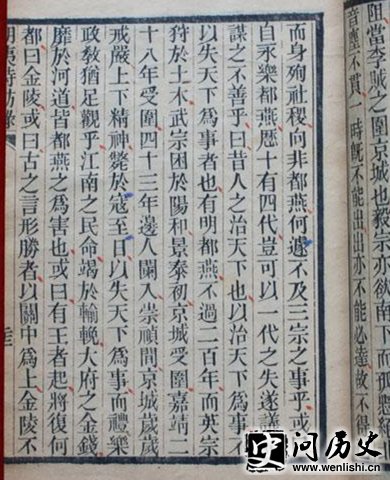 阻當李賊之圍京城也毅宗亦欲南下而孤
音塵不貫一時既不能出出亦不能必達故不得
而身殉社稷向非都燕何遽不及三宗之事乎或
自永樂都燕歷十有四代豈可以一代之失遂議
謀之不善乎曰昔人之治天下也以治天下為事不
以失天下為事者也有明都燕不過二百年而英宗
狩於土木武宗困於陽和景泰初京城受圍嘉靖二
十八年受圍四十三年邊人闌入崇禎間京城歲歲
戒嚴上下精神斃於寇至日以失天下為事而禮樂
政教猶足觀乎江南之民命竭於輸輓大府之金錢
靡於河道皆都燕之為害也或曰有王者起將復何
都曰金陵或曰古之言形勝者以關中為上金陵不
明夷待訪錄
问历史
www.wenlishi.cn